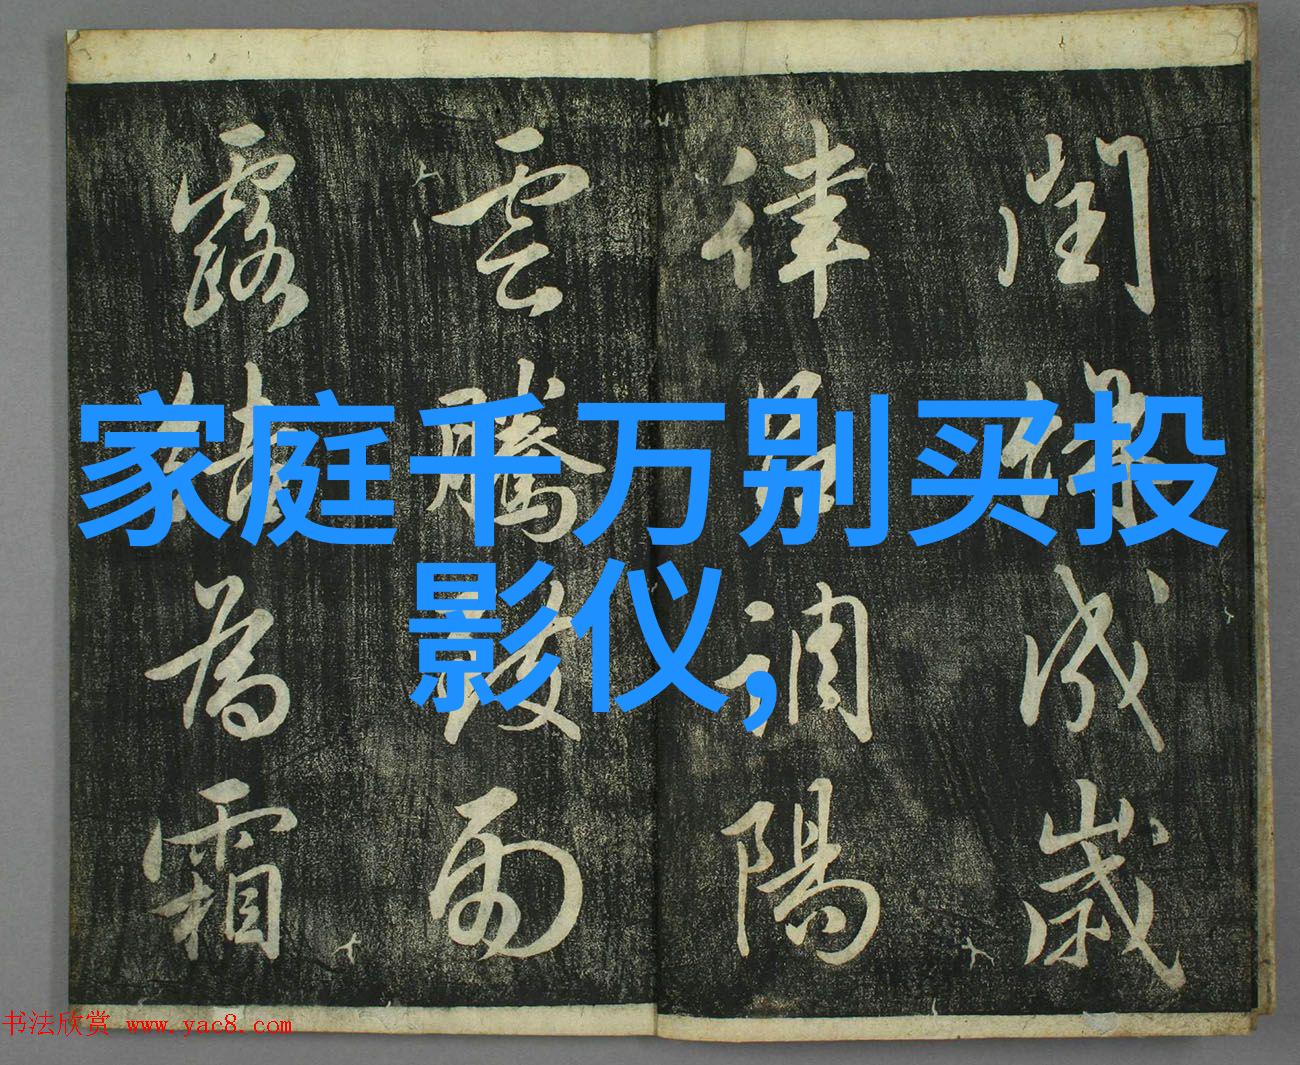 閏餘成歲
律呂調陽
雲騰致雨
露結為霜
家庭千万别买投
影仪,
书法欣赏 www.yac8.com